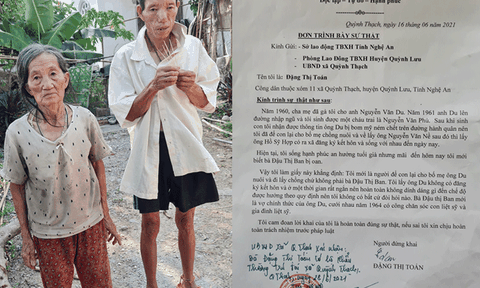 Độc lập – Tự do – Hạnh phúc
Quỳnh Thạch, ngày 16 tháng 06 năm 2021
ĐƠN TRÌNH BÀY SỰ THẬT
Kính Gửi: - Sở lao động TBXH Tỉnh Nghệ An
- Phòng Lao Động TBXH Huyện Quỳnh Lưu
- UBND xã Quỳnh Thạch
Tên tôi là: Đặng Thị Toán
Công dân thuộc xóm 11 xã Quỳnh Thạch, huyện Quỳnh Lưu, tỉnh Nghệ An
Kính trình sự thật như sau:
Năm 1960, cha mẹ đã gả tôi cho anh Nguyễn Văn Du. Năm 1961 anh Du lên
đường nhập ngũ và tôi sinh được một cháu trai là Nguyễn Văn Phú. Sau khi sinh
con tôi nhận được thông tin ông Du bị bom mỹ ném chết trên đường hành quân nên
tôi đã để con lại cho bố mẹ chồng nuôi và về lấy ông Nguyễn Văn Nể sau đó thì lấy
ông Hồ Sỹ Hợp có ra xã đăng ký kết hôn và sống với nhau đến ngày nay.
Hiện tại, tôi sống hạnh phúc an hưởng tuổi già nhưng mãi đến hôm nay tôi mới
biết bà Đậu Thị Ban bị oan.
Vậy tôi làm giấy này khẳng định: Tôi mới là người để con lại cho bố mẹ ông Du
nuôi và đi lấy chồng chứ không phải bà Đậu Thị Ban. Tôi lấy ông Du không có đăng
ký kết hôn và ở một thời gian rất ngắn nên hoàn toàn không dính dáng gì đến chế độ
được hưởng theo quy định nên không có bất cứ đòi hỏi nào. Bà Đậu Thị Ban mới
là vợ chính thức của ông Du, cưới nhau năm 1964 có công chăm sóc con liệt sỹ và
gia đình liệt sỹ.
Tôi cam đoan lời khai của tôi là hoàn toàn đúng sự thật, nếu sai tôi xin chịu hoàn
toàn trách nhiệm trước pháp luật
Người đứng khai
ĐẶNG THỊ TOÁN
Bà Đặng Thị Toán